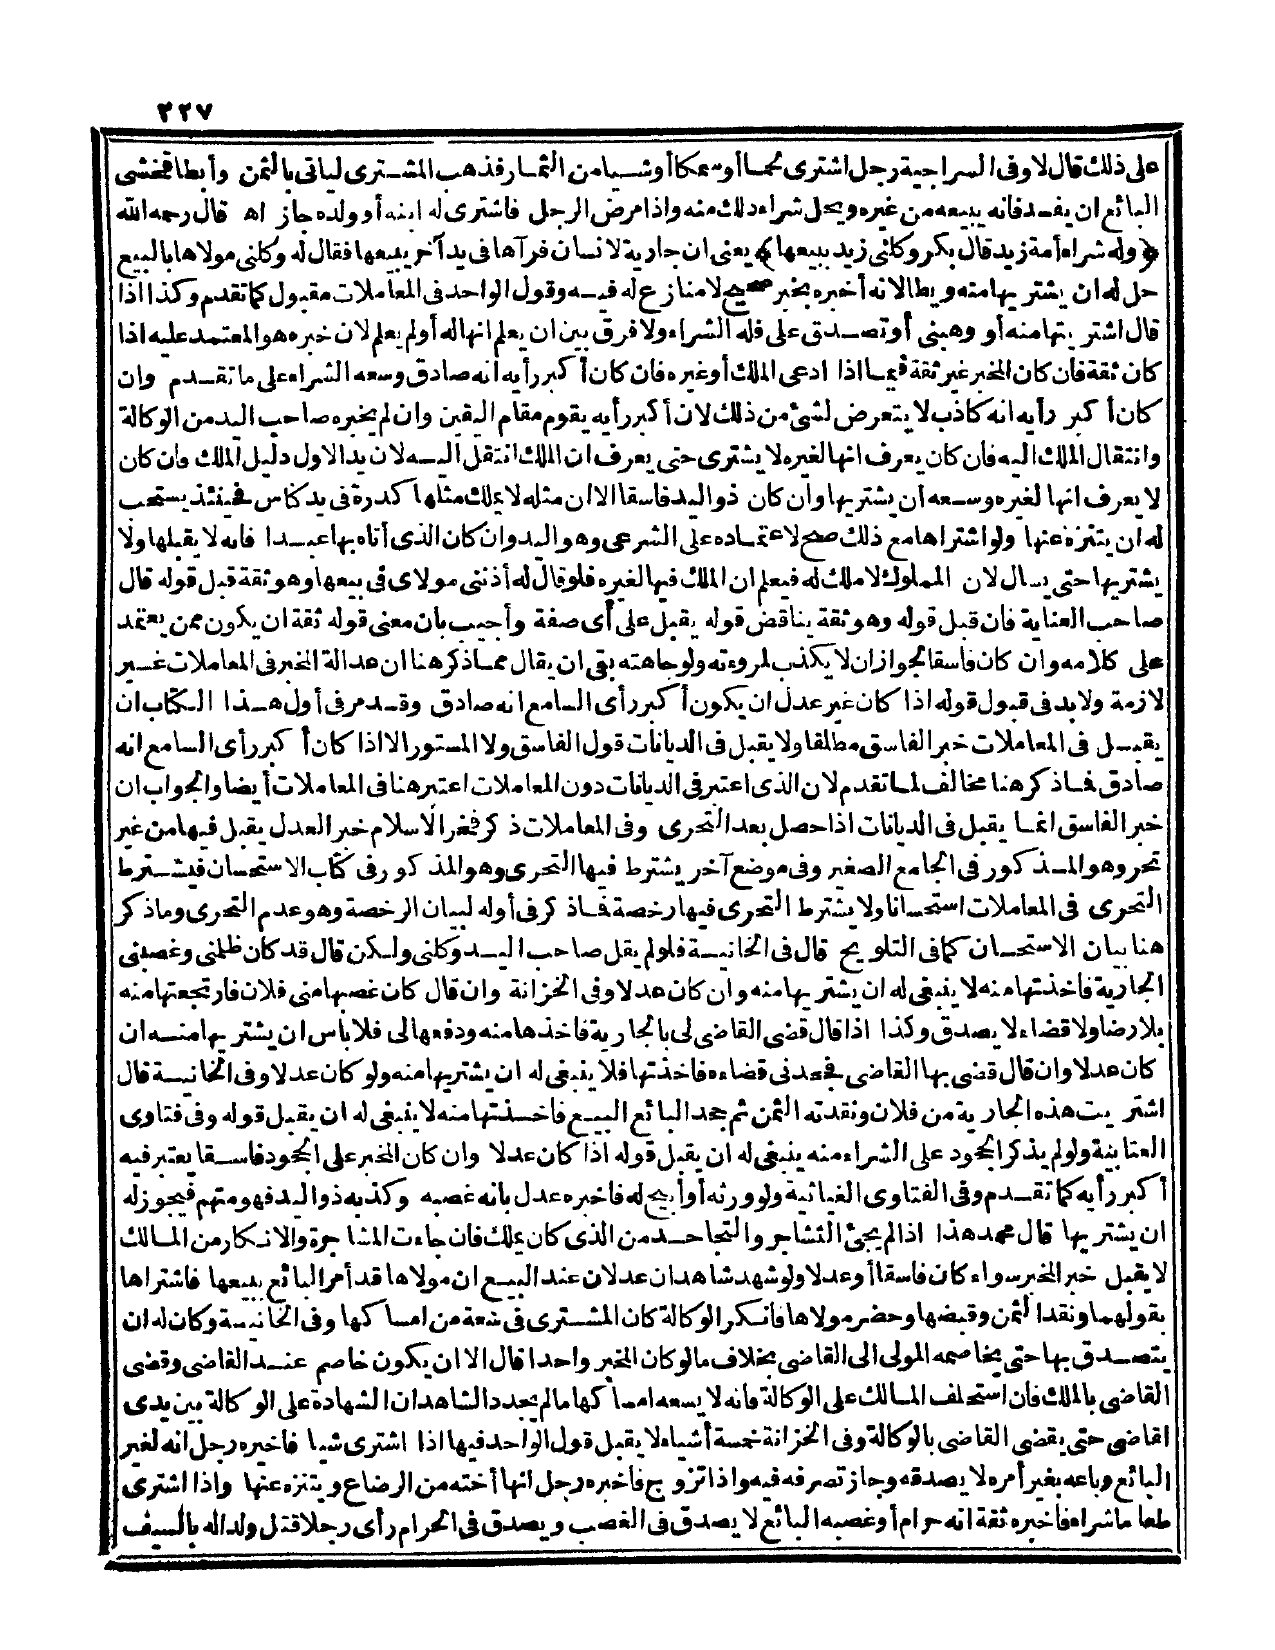 ٢٢٧
على ذلك قال لا وفى السراجية رجل اشترى لحما أو سمكا أو شيا من الثمار فذهب المشترى لياتى بالثمن وأبطا فخشى
البائع ان يفسد فانه يبيعه من غيره ويحل شراء ذلك منه واذا مرض الرجل فاشترى له ابنه أو ولده جاز اه قال رحمه الله
﴿وله شراء أمة زيد قال بكر وكلنى زيد ببيعها﴾ يعنى ان جارية لانسان فرآها فى يد آخر يبيعها فقال له وكلنى مولاها بالبيع
حل له ان يشتريها منه ويطا لانه أخبره بخبر صحيح لا منازع له فيه وقول الواحد فى المعاملات مقبول كما تقدم وكذا اذا
قال اشتريتها منه أو وهبنى أو تصدق على فله الشراء ولا فرق بين ان يعلم انها له أو لم يعلم لان خبره هو المعتمد عليه اذا
كان ثقة فان كان المخبر غير ثقة فيما اذا ادعى الملك أو غيره فان كان أكبر رأيه انه صادق وسعه الشراء على ما تقدم وان
كان أكبر رأيه انه كاذب لا يتعرض لشئ من ذلك لان أكبر رأيه يقوم مقام اليقين وان لم يخبره صاحب اليد من الوكالة
وانتقال الملك اليه فان كان يعرف انها لغيره لا يشترى حتى يعرف ان الملك انتقل اليه لان يد الاول دليل الملك وان كان
لا يعرف انها لغيره وسعه أن يشتريها وان كان ذو اليد فاسقا الا ان مثله لا يملك مثلها كدرة فى يد كناس فحينئذ يستحب
له ان يتنزه عنها ولو اشتراها مع ذلك صح لاعتماده على الشرعى وهو اليد وان كان الذى أتاه بها عبدا فانه لا يقبلها ولا
يشتريها حتى يسال لان المملوك لا ملك له فيعلم ان الملك فيها لغيره فلو قال له أذنى مولاى فى بيعها وهو ثقة قبل قوله قال
صاحب العناية فان قبل قوله وهو ثقة يناقض قوله يقبل على أى صفة وأجيب بان معنى قوله ثقة ان يكون ممن يعتمد
على كلامه وان كان فاسقا لجواز ان لا يكذب لمروءته ولوجاهته بقى ان يقال مما ذكر هنا ان عدالة المخبر فى المعاملات غير
لازمة ولا بد فى قبول قوله اذا كان غير عدل ان يكون أكبر رأى السامع انه صادق وقد مر فى أول هذا الكتاب ان
يقبل فى المعاملات خبر الفاسق مطلقا ولا يقبل فى الديانات قول الفاسق ولا المستور الا اذا كان أكبر رأى السامع انه
صادق فما ذكر هنا مخالف لما تقدم لان الذى اعتبر فى الديانات دون المعاملات اعتبر هنا فى المعاملات أيضا والجواب ان
خبر الفاسق انما يقبل فى الديانات اذا حصل بعد التحرى وفى المعاملات ذكر فخر الاسلام خبر العدل يقبل فيها من غير
تحر وهو المذكور فى الجامع الصغير وفى موضع آخر يشترط فيها التحرى وهو المذكور فى كتاب الاستحسان فيشترط
التحرى فى المعاملات استحسانا ولا يشترط التحرى فيها رخصة فما ذكر فى أوله لبيان الرخصة وهو عدم التحرى وما ذكر
هنا بيان الاستحسان كما فى التلويح قال فى الخانية فلو لم يقل صاحب اليد وكلنى ولكن قال قد كان ظلمنى وغصبنى
الجارية فاخذتها منه لا ينبغى له ان يشتريها منه وان كان عدلا وفى الخزانة وان قال كان غصبها منى فلان فارتجعتها منه
بلا رضا ولا قضاء لا يصدق وكذا اذا قال قضى القاضى لى بالجارية فاخذها منه ودفعها الى فلا باس ان يشتريها منه ان
كان عدلا وان قال قضى بها القاضى فجحدنى قضاءه فاخذتها فلا ينبغى له ان يشتريها منه ولو كان عدلا وفى الخانية قال
اشتريت هذه الجارية من فلان ونقدته الثمن ثم جحد البائع البيع فاخذتها منه لا ينبغى له ان يقبل قوله وفى فتاوى
العتابية ولو لم يذكر الجحود على الشراء منه ينبغى له ان يقبل قوله اذا كان عدلا وان كان المخبر على الجحود فاسقا يعتبر فيه
أكبر رأيه كما تقدم وفى الفتاوى الغياثية ولو ورثه أو أبيح له فاخبره عدل بانه غصبه وكذبه ذو اليد فهو متهم فيجوز له
ان يشتريها قال محمد هذا اذا لم يجئ التشاجر والتجاحد من الذى كان يملك فان جاءت المشاجرة والانكار من المالك
لا يقبل خبر المخبر سواء كان فاسقا أو عدلا ولو شهد شاهدان عدلان عند البيع ان مولاها قد أمر البائع ببيعها فاشتراها
بقولهما ونقد الثمن وقبضها وحضر مولاها فانكر الوكالة كان المشترى فى سعة من امساكها وفى الخانية وكان له ان
يتصدق بها حتى يخاصمه المولى الى القاضى بخلاف ما لو كان المخبر واحدا قال الا ان يكون خاصم عند القاضى وقضى
القاضى بالملك فان استحلف المالك على الوكالة فانه لا يسعه امساكها ما لم يجدد الشاهدان الشهادة على الوكالة بين يدى
القاضى حتى يقضى القاضى بالوكالة وفى الخزانة خمسة أشياء لا يقبل قول الواحد فيها اذا اشترى شيا فاخبره رجل انه لغير
البائع وباعه بغير أمره لا يصدقه وجاز تصرفه فيه واذا تزوج فاخبره رجل انها أخته من الرضاع ويتنزه عنها واذا اشترى
طعاما شراه فاخبره ثقة انه حرام أو غصبه البائع لا يصدق فى الغصب ويصدق فى الحرام رأى رجلا قتل ولد اله بالسيف